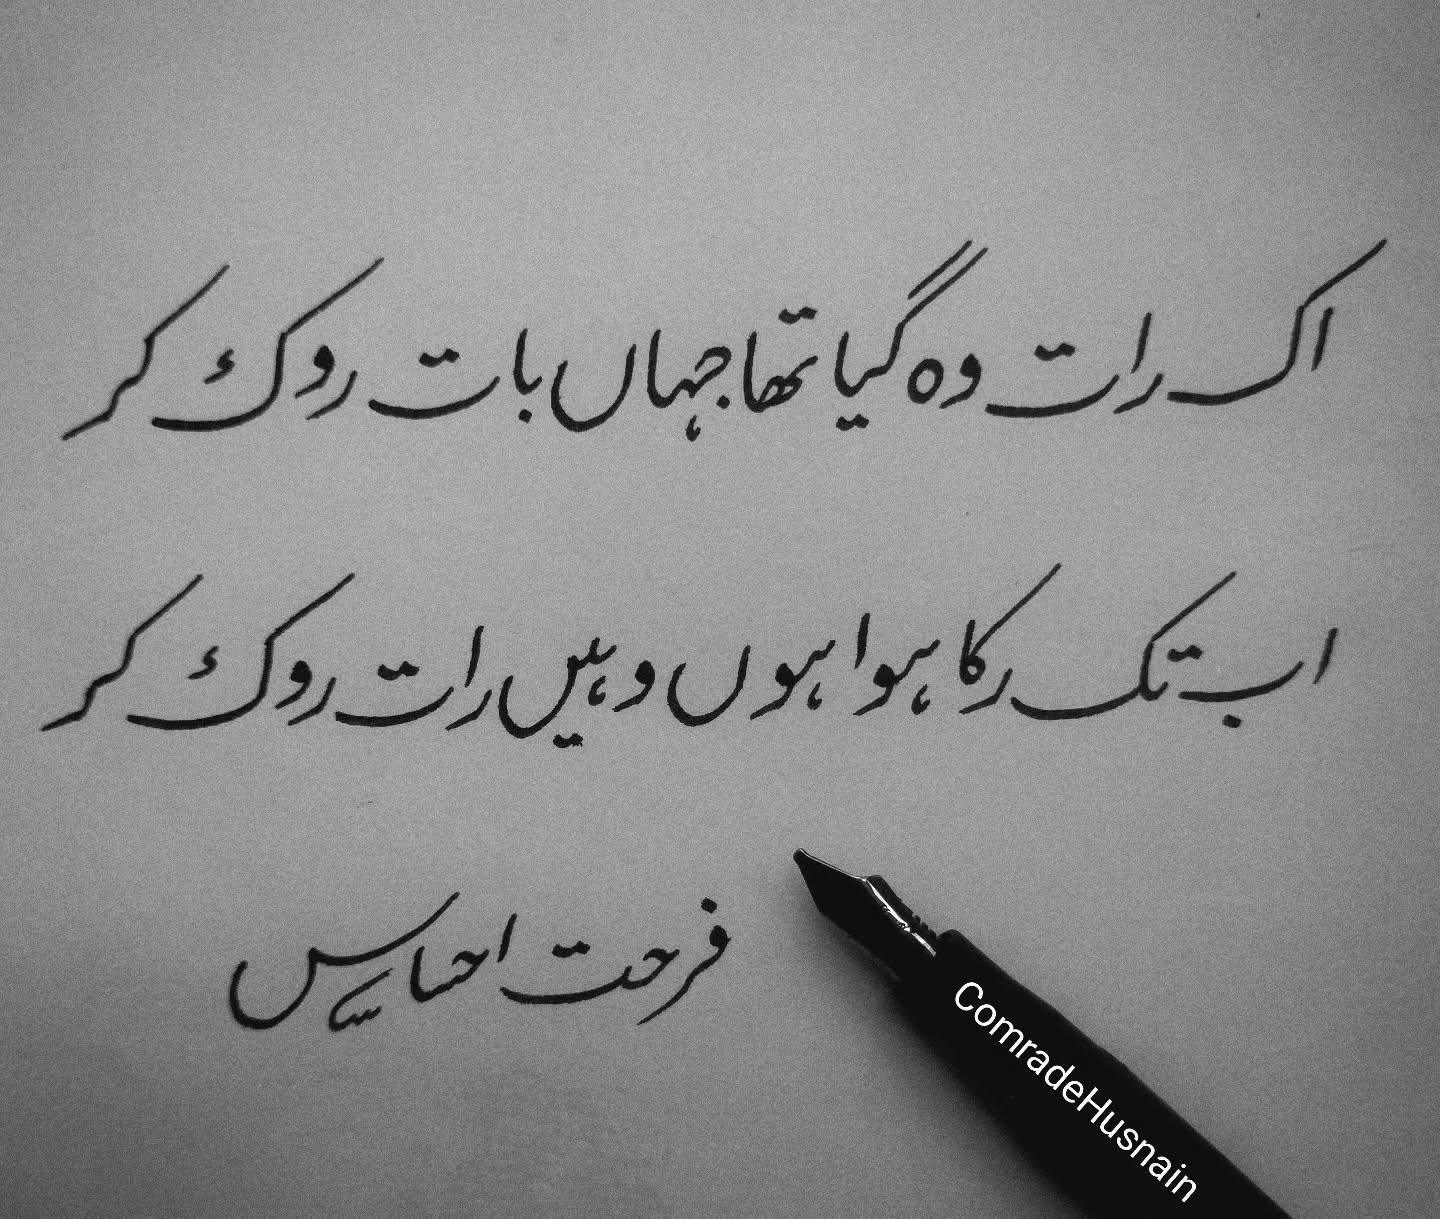 اک رات وہ گیا تھا جہاں بات روک کر
اب تک رکا ہوا ہوں وہیں رات روک کر
فرحت احساس
ComradeHusnain